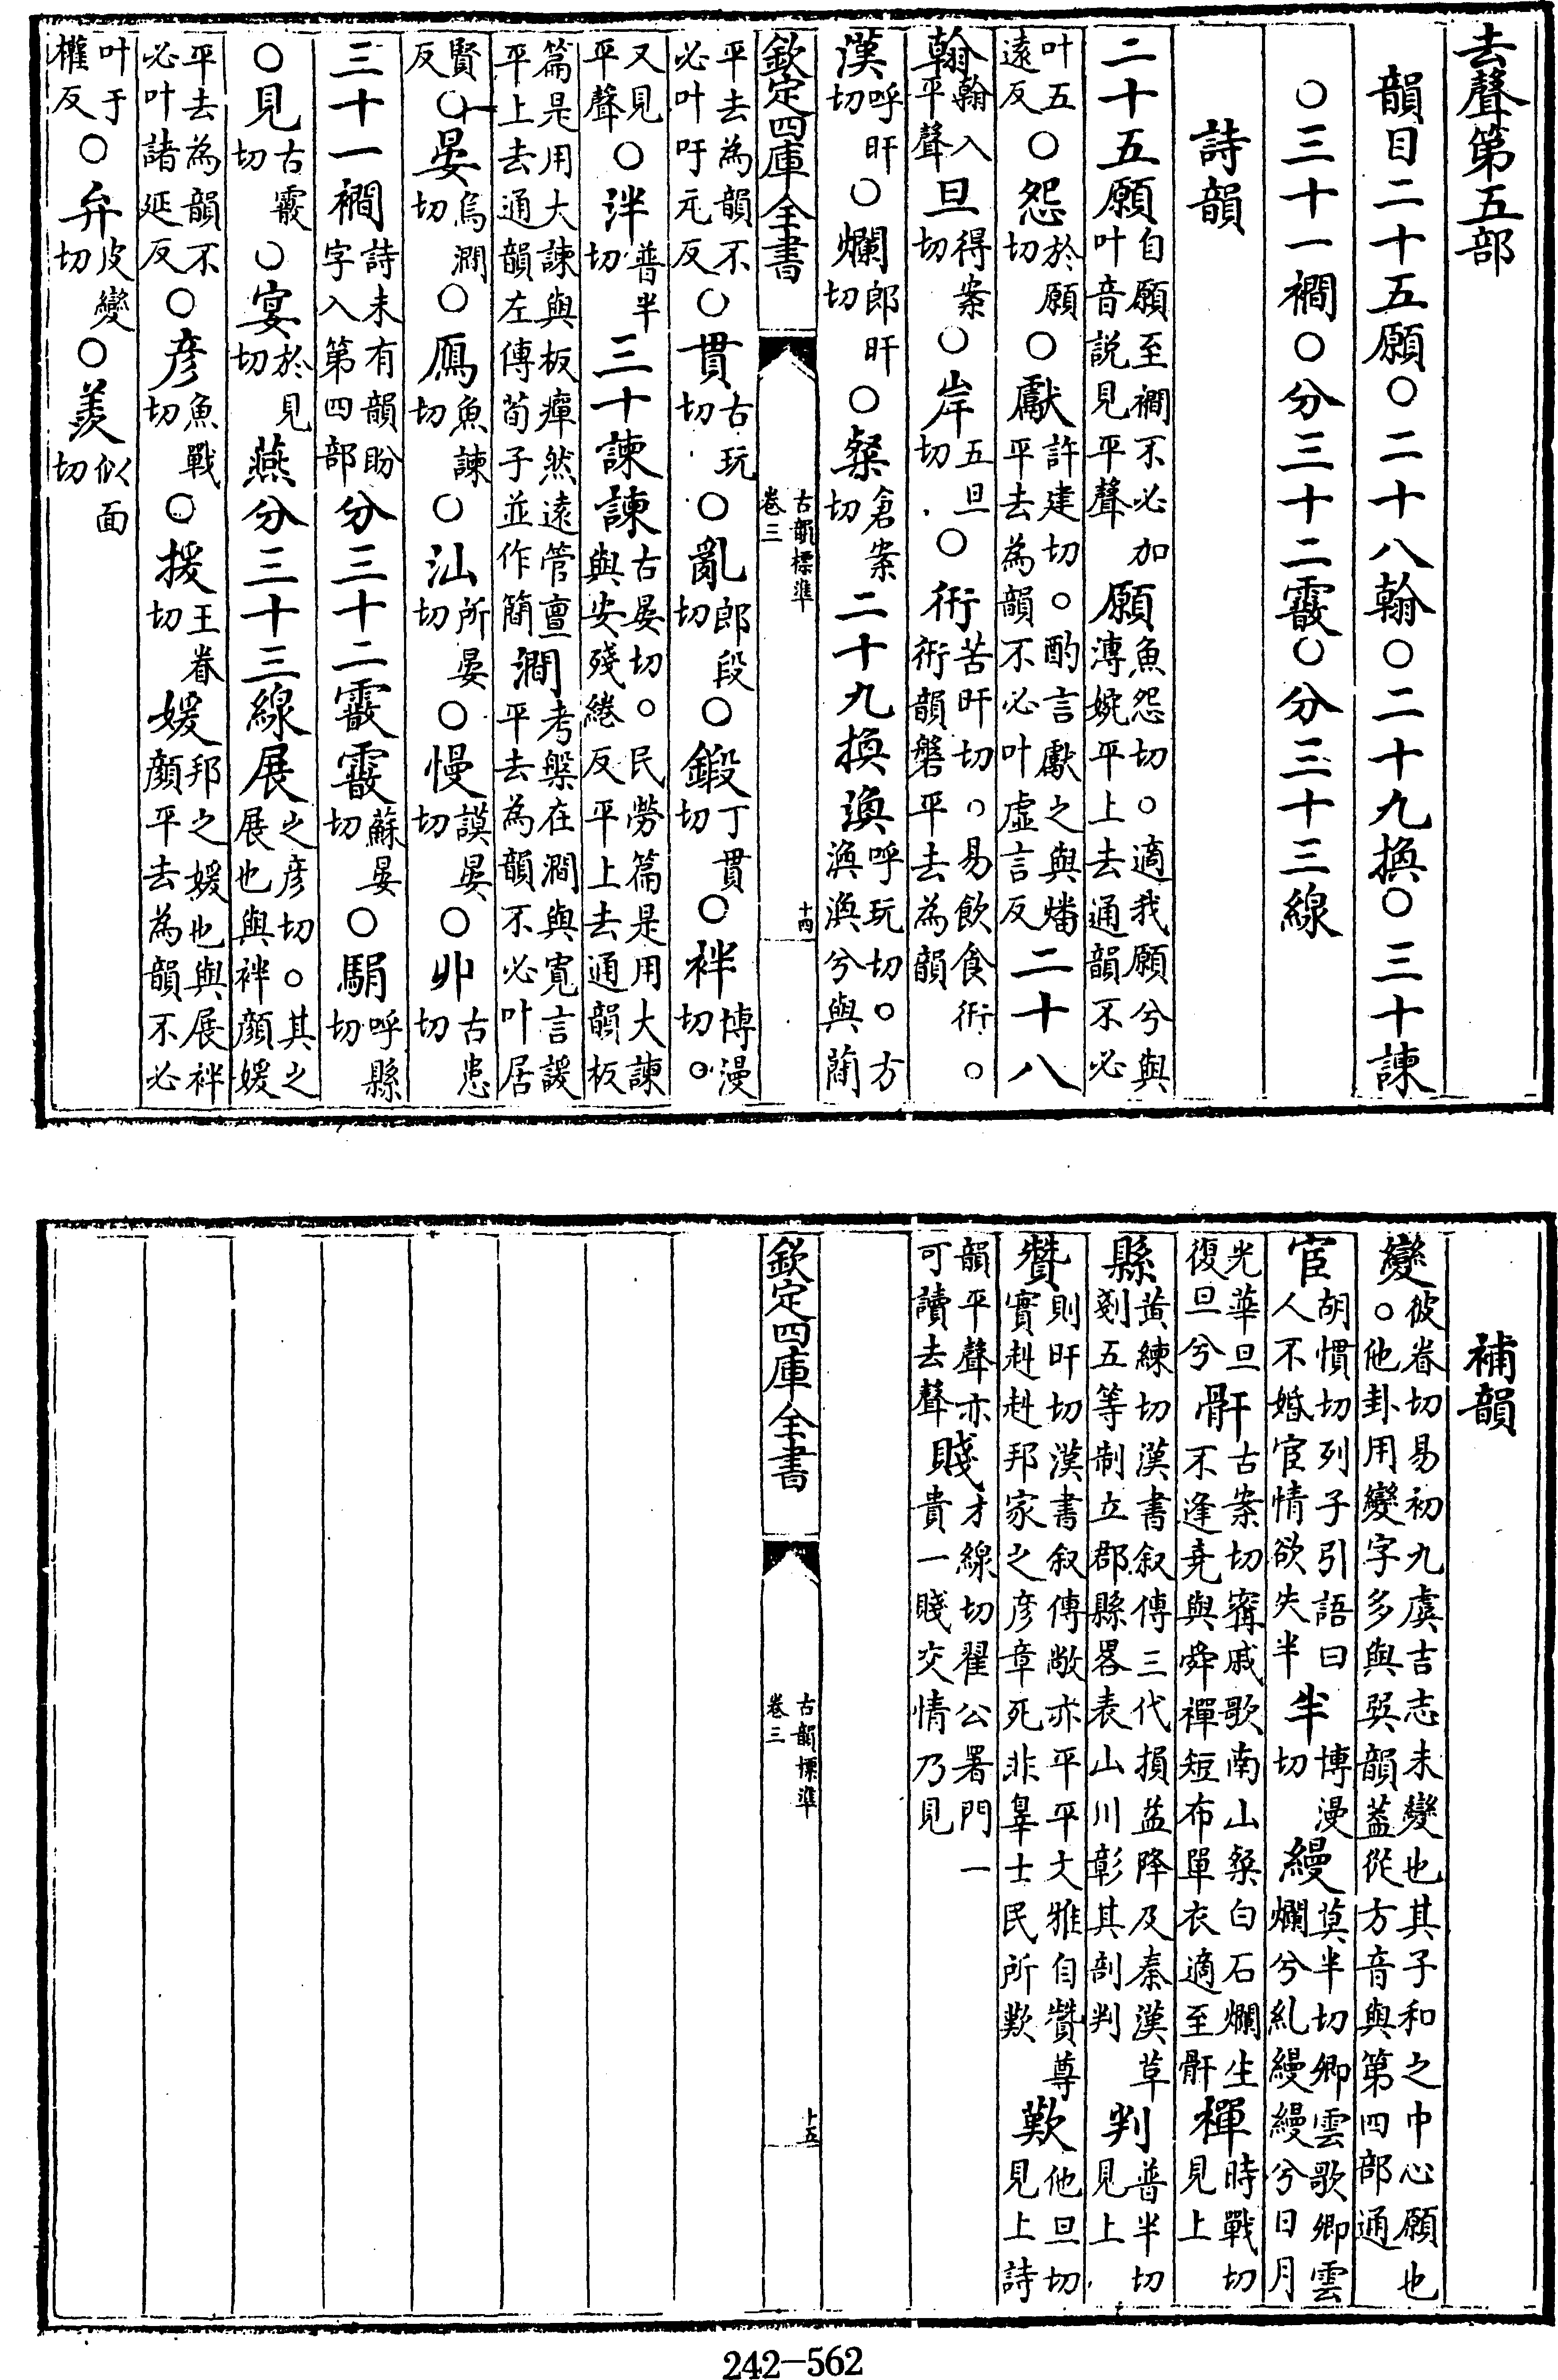 去聲第五部
韻目二十五願○二十八翰○二十九換○三十諫
○三十一襉○分三十二霰○分三十三線
詩韻
二十五願自願至襉不必加叶音説見平聲願魚怨切○適我願兮與漙婉平上去通韻不必
叶五遠反○怨於願切○獻許建切○酌言獻之與燔平去為韻不必叶虛言反二十八
翰翰入平聲旦得案切○岸五旦切○衎苦旰切○易飲食衎衎○衎韻磐平去為韻
漢呼旰切○爛郎旰切○粲倉案切二十九換渙呼玩切○方渙渙兮與蕑
欽定四庫全書
古韻標準
卷三
十四
平去為韻不必叶吁元反○貫古玩切○亂郎段切○鍛丁貫切○袢博漫切○
又見平聲○泮普半切三十諫諫古晏切○民勞篇是用大諫與安殘綣反平上去通韻板
篇是用大諫與板癉然遠管亶平上去通韻左傳荀子並作簡澗考槃在澗與寬言諼平去為韻不必叶居
賢反○晏烏澗切○鴈魚諫切○汕所晏切○慢謨晏切○丱古患切
三十一襉詩未有韻盼字入第四部分三十二霰霰蘇晏切○駽呼縣切
○見古霰切○宴於見切燕分三十三線展之彥切○其之展也與袢顏媛
平去為韻不必叶諸延反○彥魚戰切○援王眷切媛邦之媛也與展袢顏平去為韻不必
叶于權反○弁皮變切○羨似面切
補韻
變彼眷切易初九虞吉志未變也其子和之中心願也○他卦用變字多與巽韻葢從方音與第四部通
宦胡慣切列子引語曰人不婚宦情欲失半半博漫切縵莫半切卿雲歌卿雲爛兮糺縵縵兮日月
光華旦復旦兮骭古案切甯戚歌南山粲白石爛生不逢堯與舜禪短布單衣適至骭禪時戰切見上
縣黃練切漢書叙傳三代損益降及秦漢革剗五等制立郡縣畧表山川彰其剖判判普半切見上
贊則旰切漢書叙傳敞亦平平文雅自贊尊實赳赳邦家之彥章死非辠士民所歎歎他旦切見上詩
韻平聲亦可讀去聲賤才線切翟公署門一貴一賤交情乃見
欽定四庫全書
古韻標準
卷三
十五
242-562